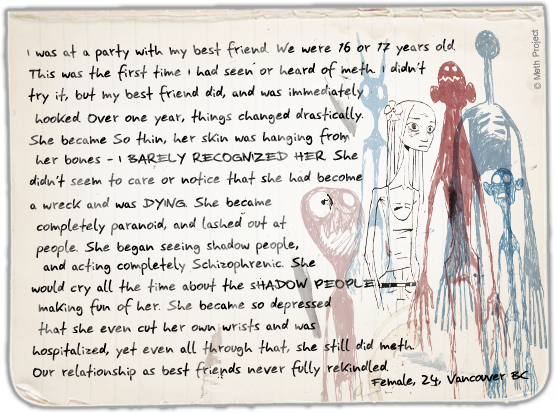 I was at a party with my best friend. We were 16 or 17 years old.
This was the first time I had seen or heard of meth. I didn't
try it, but my best friend did, and was immediately
hooked. Over one year, things changed drastically.
She became so thin, her skin was hanging from
her bones - I BARELY RECOGNIZED HER. She
didn't seem to care or notice that she had become
a wreck and was DYING. She became
completely paranoid, and lashed out at
people. She began seeing shadow people,
and acting completely Schizophrenic. She
would cry all the time about the SHADOW PEOPLE
making fun of her. She became so depressed
that she even cut her own wrists and was
hospitalized, yet even all through that, she still did meth.
Our relationship as best friends never fully rekindled.
Female, 24, Vancouver BC
© Meth Project